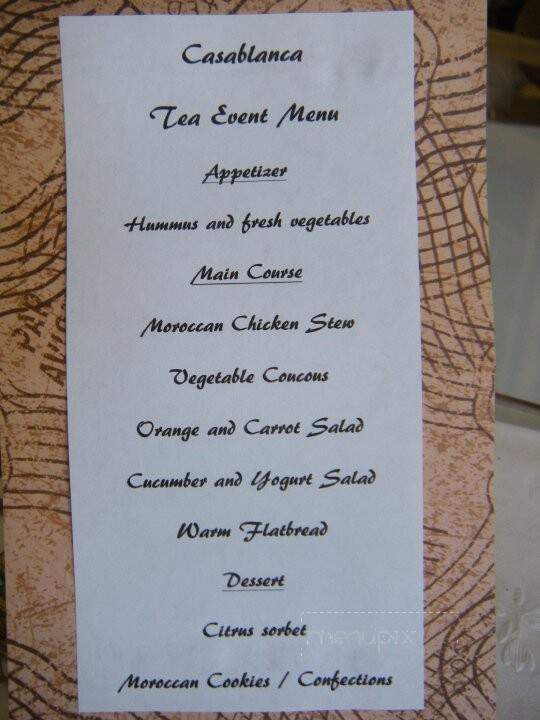 Casablanca
Tea Event Menu
Appetizer
Hummus and fresh vegetables
Main Course
Moroccan Chicken Stew
Vegetable Coucous
Orange and Carrot Salad
Cucumber and Yogurt Salad
Warm Flatbread
Dessert
Citrus sorbet
menupix
Moroccan Cookies / Confections